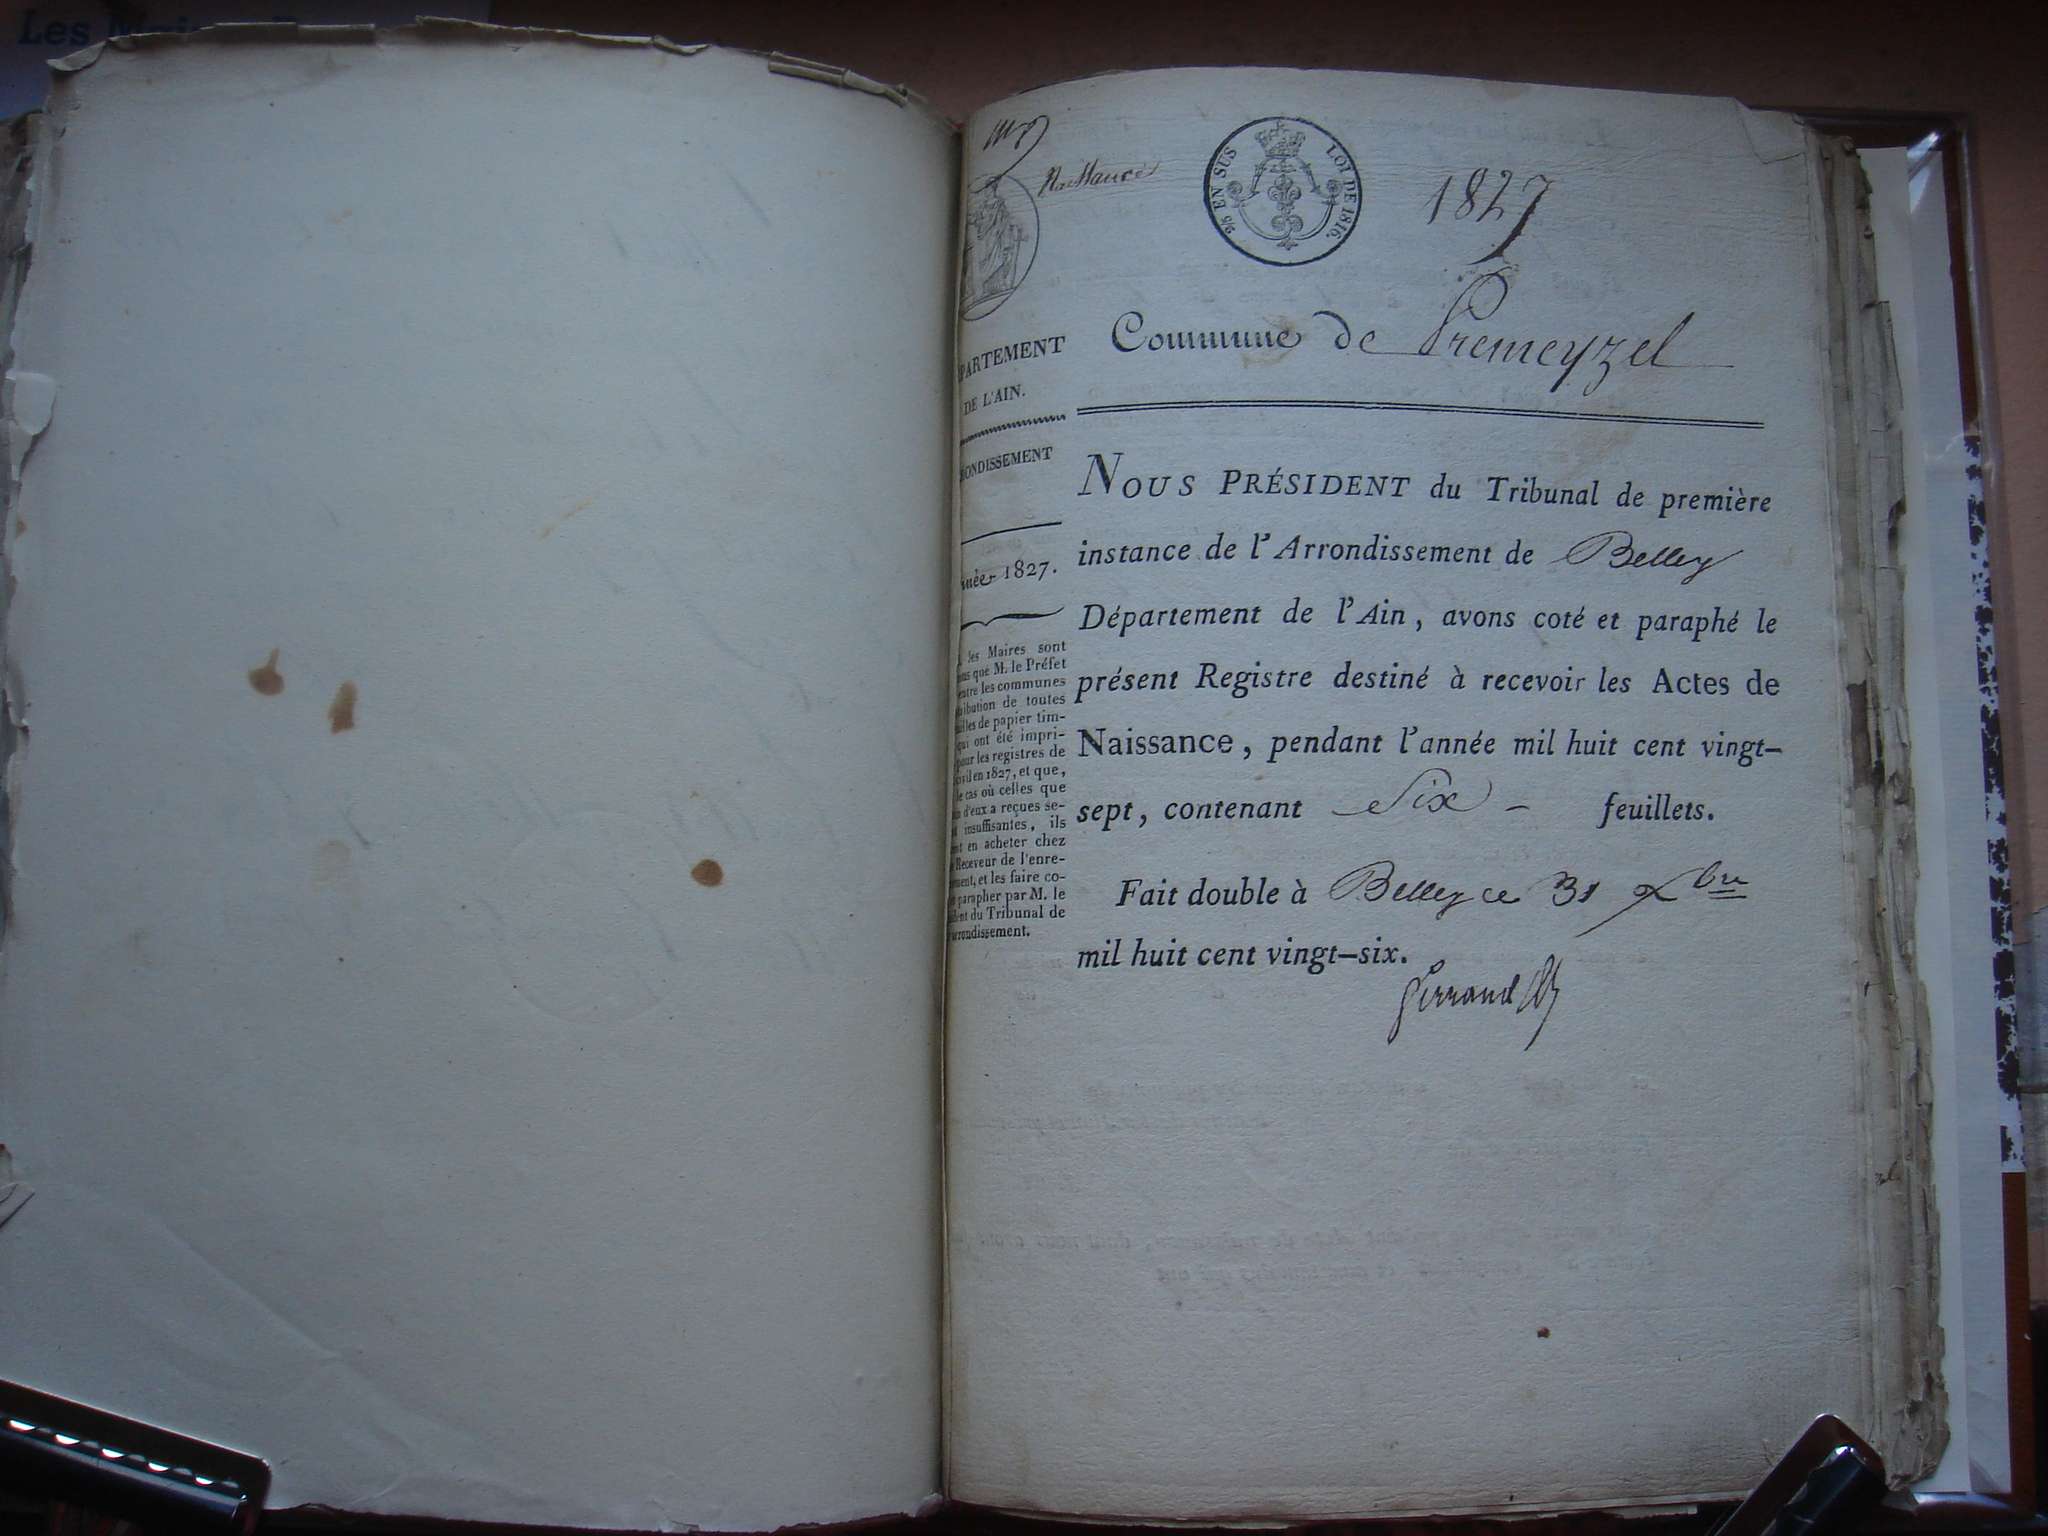 Les
Naissance
2/5 EN SUS LOI DE 1816.
1827
Commune de Premeyzel
PARTEMENT
DE L'AIN.
ONDISSEMENT
née 1827.
les Maires sont
que M. le Préfet
entre les communes
ibution de toutes
lles de papier tim-
qui ont été impri-
pour les registres de
ivil en 1827, et que,
le cas où celles que
d'eux a reçues se-
insuffisantes, ils
nt en acheter chez
Receveur de l'enre-
ement, et les faire co-
parapher par M. le
dent du Tribunal de
rrondissement.
NOUS PRÉSIDENT du Tribunal de première
instance de l'Arrondissement de Belley
Département de l'Ain, avons coté et paraphé le
présent Registre destiné à recevoir les Actes de
Naissance, pendant l'année mil huit cent vingt-
sept, contenant Six - feuillets.
Fait double à Belley ce 31 Xbre
mil huit cent vingt-six.